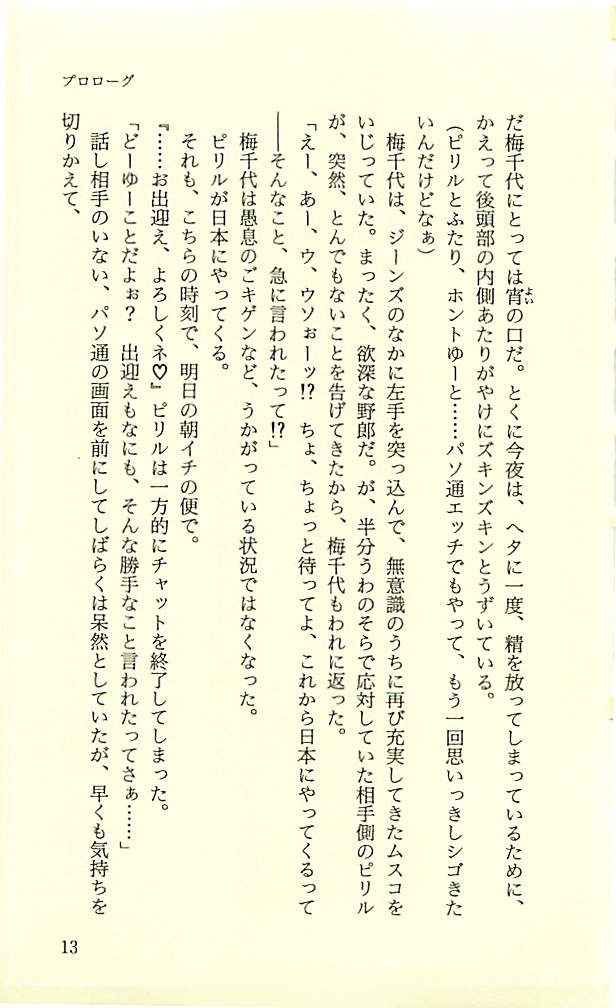 プロローグ
だ梅千代にとっては宵の口だ。とくに今夜は、ヘタに一度、精を放ってしまっているために、
よい
かえって後頭部の内側あたりがやけにズキンズキンとうずいている。
（ピリルとふたり、ホントゆーと……パソ通エッチでもやって、もう一回思いっきしシゴきた
いんだけどなぁ）
梅千代は、ジーンズのなかに左手を突っ込んで、無意識のうちに再び充実してきたムスコを
いじっていた。まったく、欲深な野郎だ。が、半分うわのそらで応対していた相手側のピリル
が、突然、とんでもないことを告げてきたから、梅千代もわれに返った。
「えー、あー、ウ、ウソぉーッ!?　ちょ、ちょっと待ってよ、これから日本にやってくるって
――そんなこと、急に言われたって!?」
梅千代は愚息のごキゲンなど、うかがっている状況ではなくなった。
ピリルが日本にやってくる。
それも、こちらの時刻で、明日の朝イチの便で。
『……お出迎え、よろしくネ♡』ピリルは一方的にチャットを終了してしまった。
「どーゆーことだよぉ？　出迎えもなにも、そんな勝手なこと言われたってさぁ……」
話し相手のいない、パソ通の画面を前にしてしばらくは呆然としていたが、早くも気持ちを
切りかえて、
13